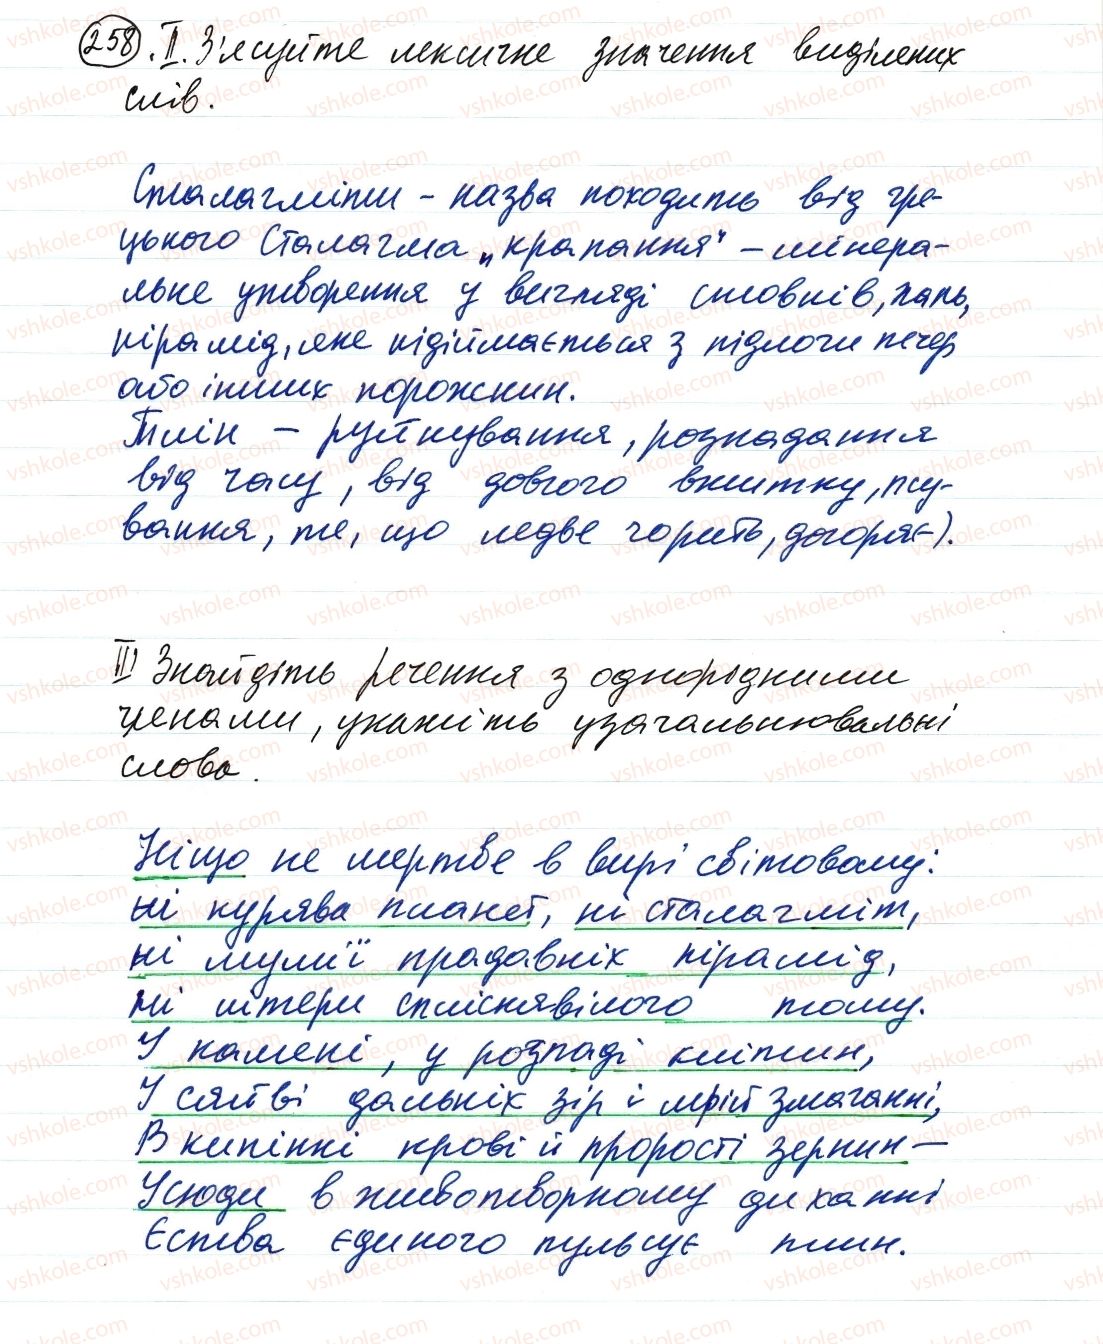 258. II. З'ясуйте лексичне значення виділених
слів.
Сталагміти - назва походить від гре-
цького Сталагма „крапання" - мінера-
льне утворення у вигляді стовпів, паль,
пірамід, яке підіймається з підлоги печер
або інших порожнин.
Тлін - руйнування, розпадання
від часу, від довгого вжитку, псу-
вання, те, що ледве горить, догоряє).
III Знайдіть речення з однорідними
членами, укажіть узагальнювальні
слова.
Ніщо не мертве в вирі світовому:
ні курява планет, ні сталагміт,
ні мумії прадавніх пірамід,
ні літери спліснявілого тому.
У камені, у розпаді клітин,
У сяйві дальніх зір і мрій змаганні,
В кипінні крові й прорості зернин —
Усюди в животворному диханні
Єства єдиного пульсує плин.